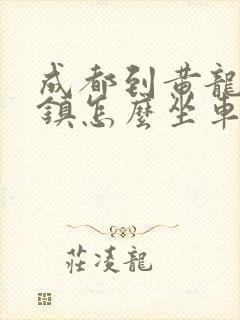 成都到黃龍
鎮怎麼坐車
莊凌龍